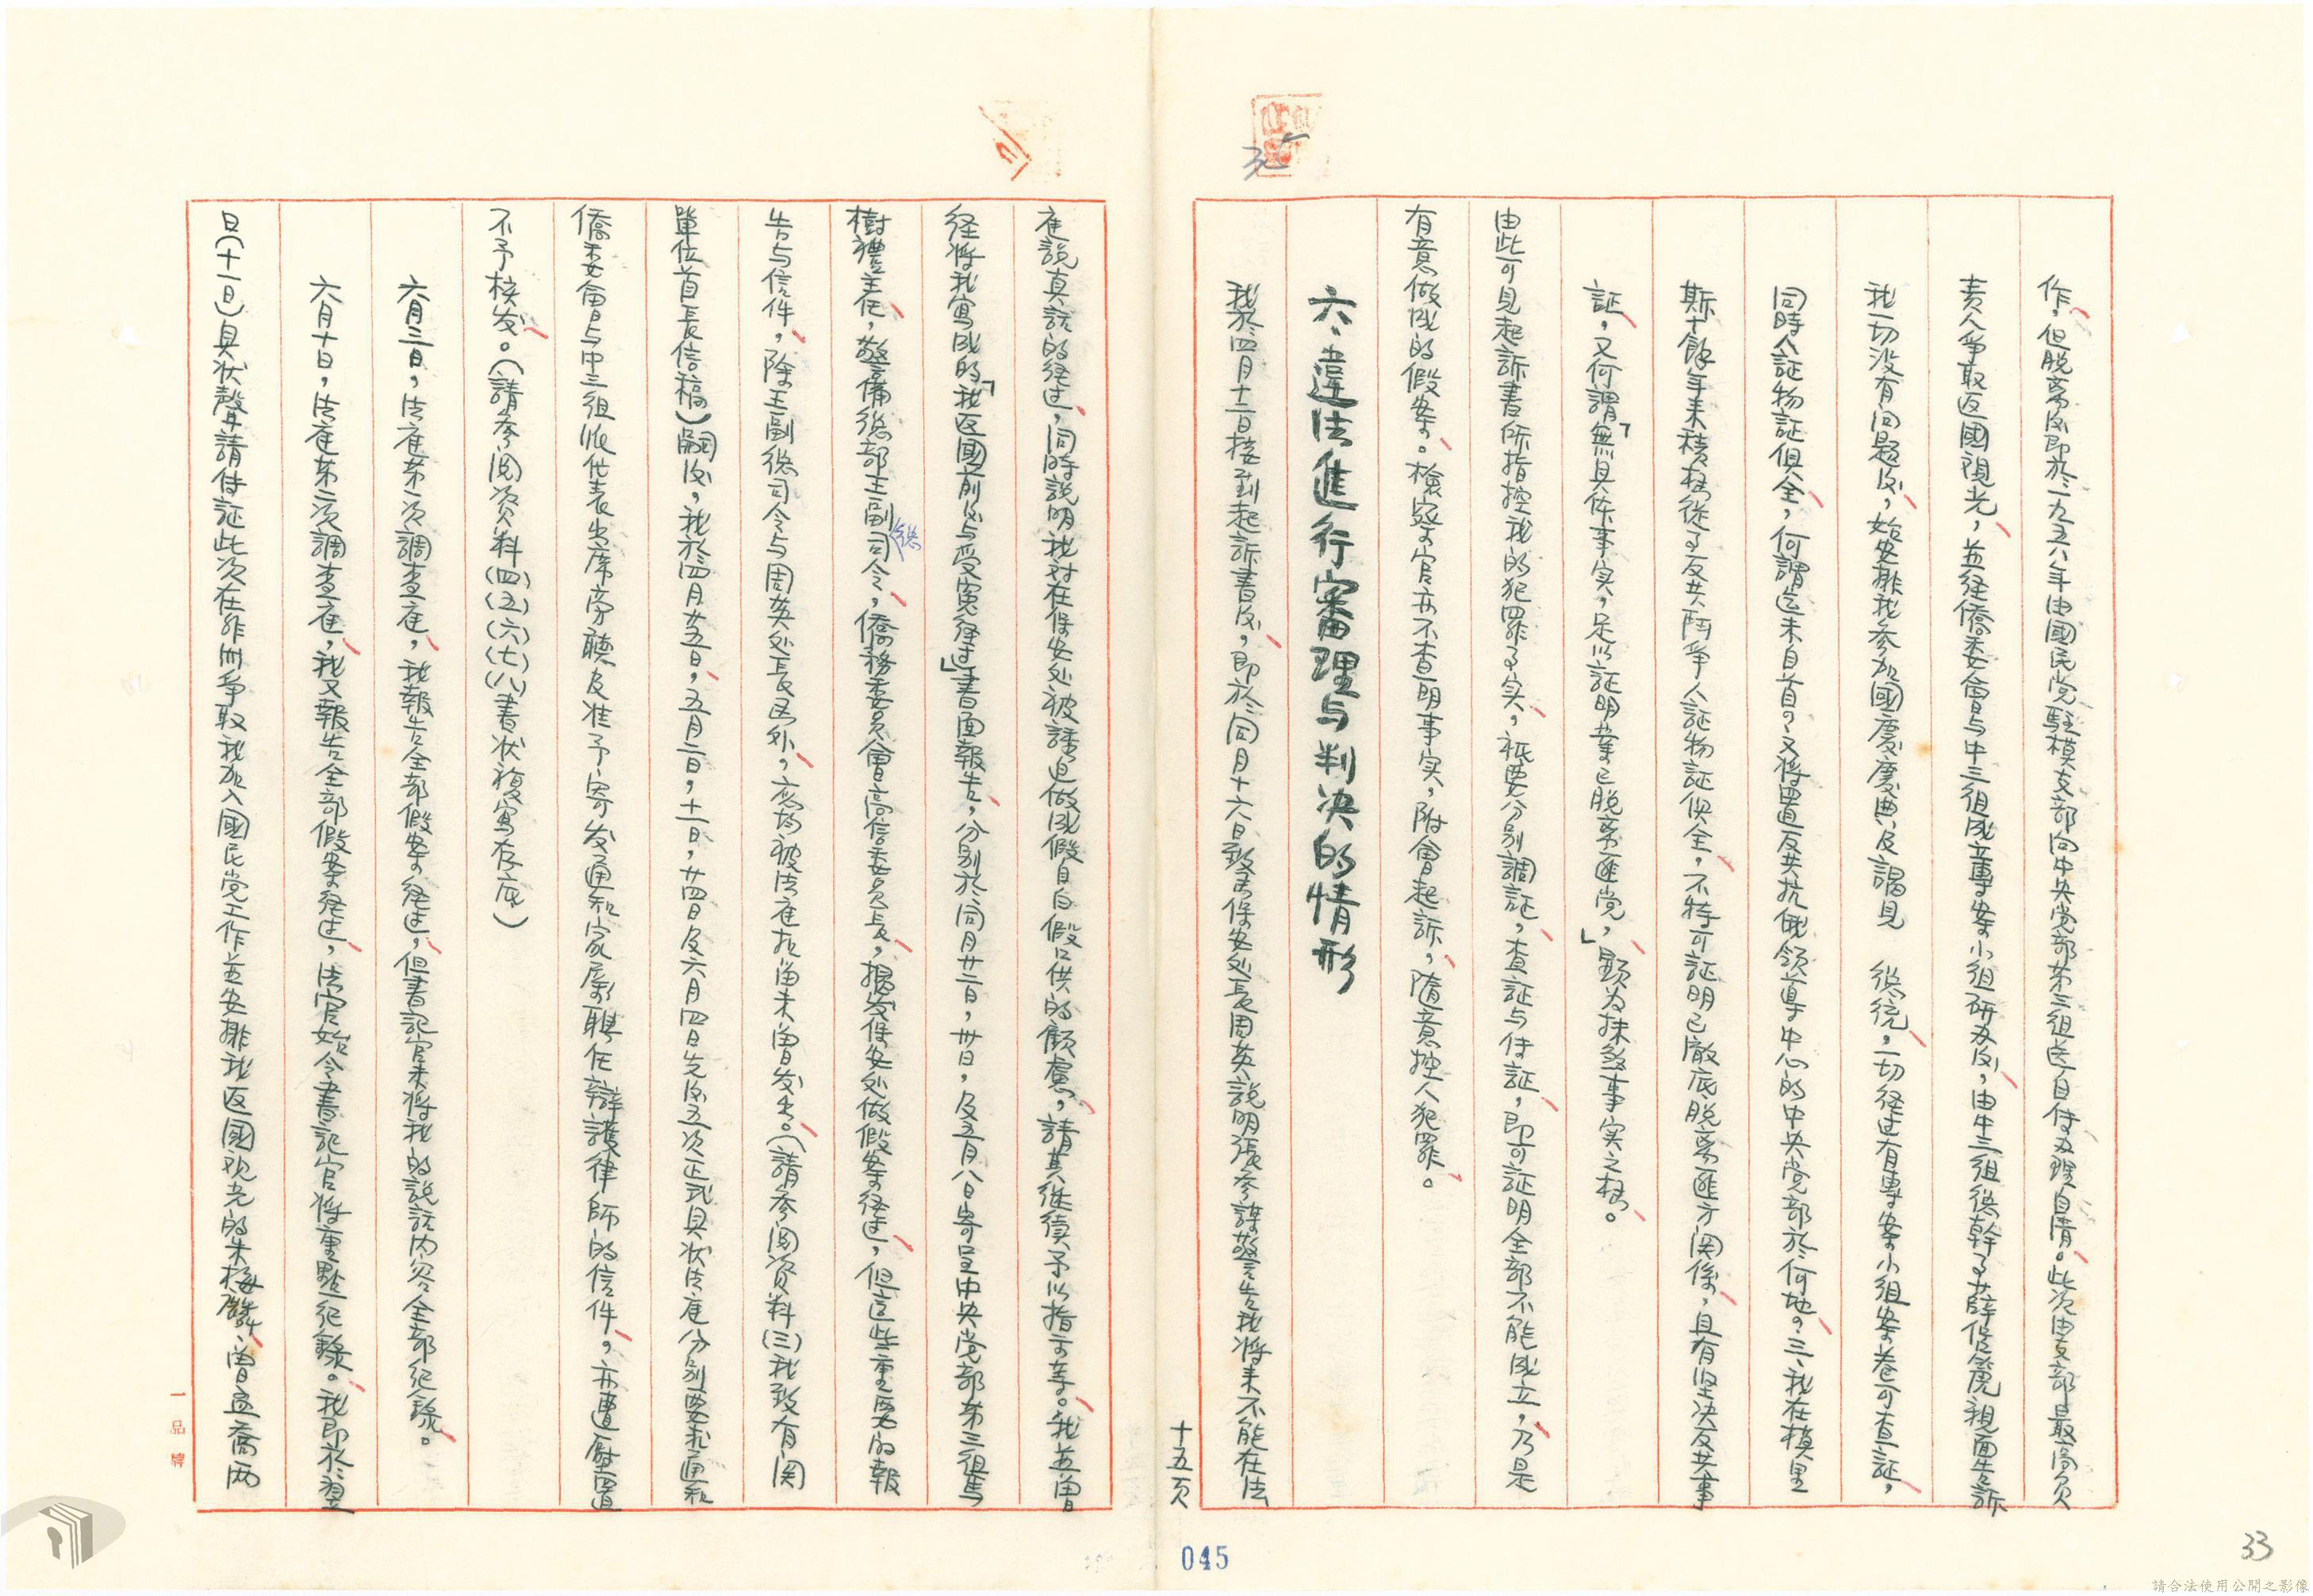 作，但脱离后即於一九五六年由國民党駐模支部向中央党部苐三組送自传办理自清。此次由支部最高负
责人爭取返國观光，並经僑委會与中三組成立專案小組研办后，由中三組総幹事薛修箎親面告訴
我一切没有问題后，始安排我参加國慶慶典及謁見　総统，一切经过有專案小組案卷可查証，
同時人証物証俱全，何謂迄未自首？又将置反共抗俄領導中心的中央党部於何地？三、我在模里
斯十餘年来積極從事反共鬥爭人証物証俱全，不特可証明已徹底脱离匪方関係，且有坚决反共事
証，又何謂「無具体事实，足以証明業已脱离匪党」，顕为抹煞事实之極。
由此可見起訴書所指控我的犯罪事实，祇要分别調証，查証与传証，即可証明全部不能成立，乃是
有意做成的假案。檢察官亦不查明事实，附會起訴，隨意控人犯罪。
六、違法進行審理与判决的情形
我於四月十二日接到起訴書后，即於同月十六日致函保安处長周英説明張参謀警告我将来不能在法
十五页
庭說真話的经过，同時説明我对在保安处被誘迫做成假自白假口供的顧慮，請其继續予以指示等。我並曾
经将我寫成的「我返國前后与受冤经过」書面報告，分别於同月廿二日，卅日，及五月八日寄呈中央党部苐三組馬
樹禮主任，警備総部王副総司令，僑務委員會高信委員長，揭发保安处做假案经过，但這些重要的報
告与信件，除王副総司令与周英处長函外，広均被法庭扣留未曾发出。（請参阅资料（三）我致有関
單位首長信稿）嗣后，我於四月廿五日，五月二日，十一日，廿四日及六月四日先后五次正式具状法庭分别要求通知
僑委會与中三組派代表出席旁聽及准予寄发通知家屬聘任辯護律師的信件。亦遭壓置
不予核发。（請参阅资料（四）（五）（六）（七）（八）書状複寫存底）
六月三日，法庭苐一次調查庭，我報告全部假案经过，但書記官未将我的説話内容全部纪錄。
六月十日，法庭苐二次調查庭，我又報告全部假案经过，法官始令書記官将重點纪錄。我即於翌
日（十一日）具状聲請传証此次在非洲爭取我加入國民党工作並安排我返國观光的朱梅麟、曾孟喬两
一品牌
045
33
請合法使用公開之影像